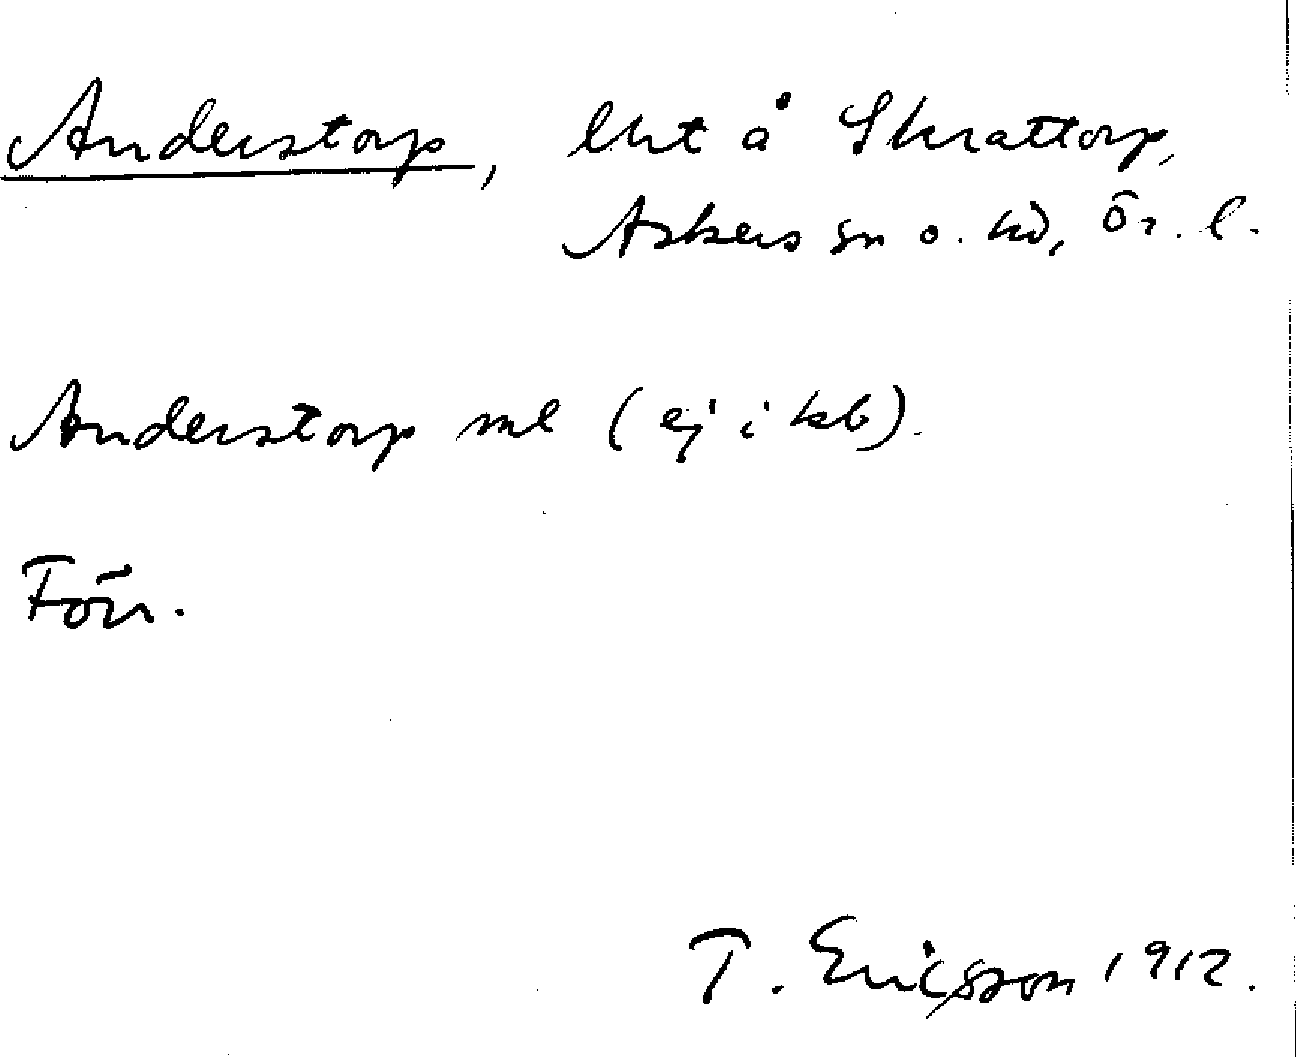 Anderstorp, lht å Skrattorp,
Askers sn o. hd, Ör. l.
Anderstorp ml (ej i kb).
Förr.
T. Ericsson 1912.